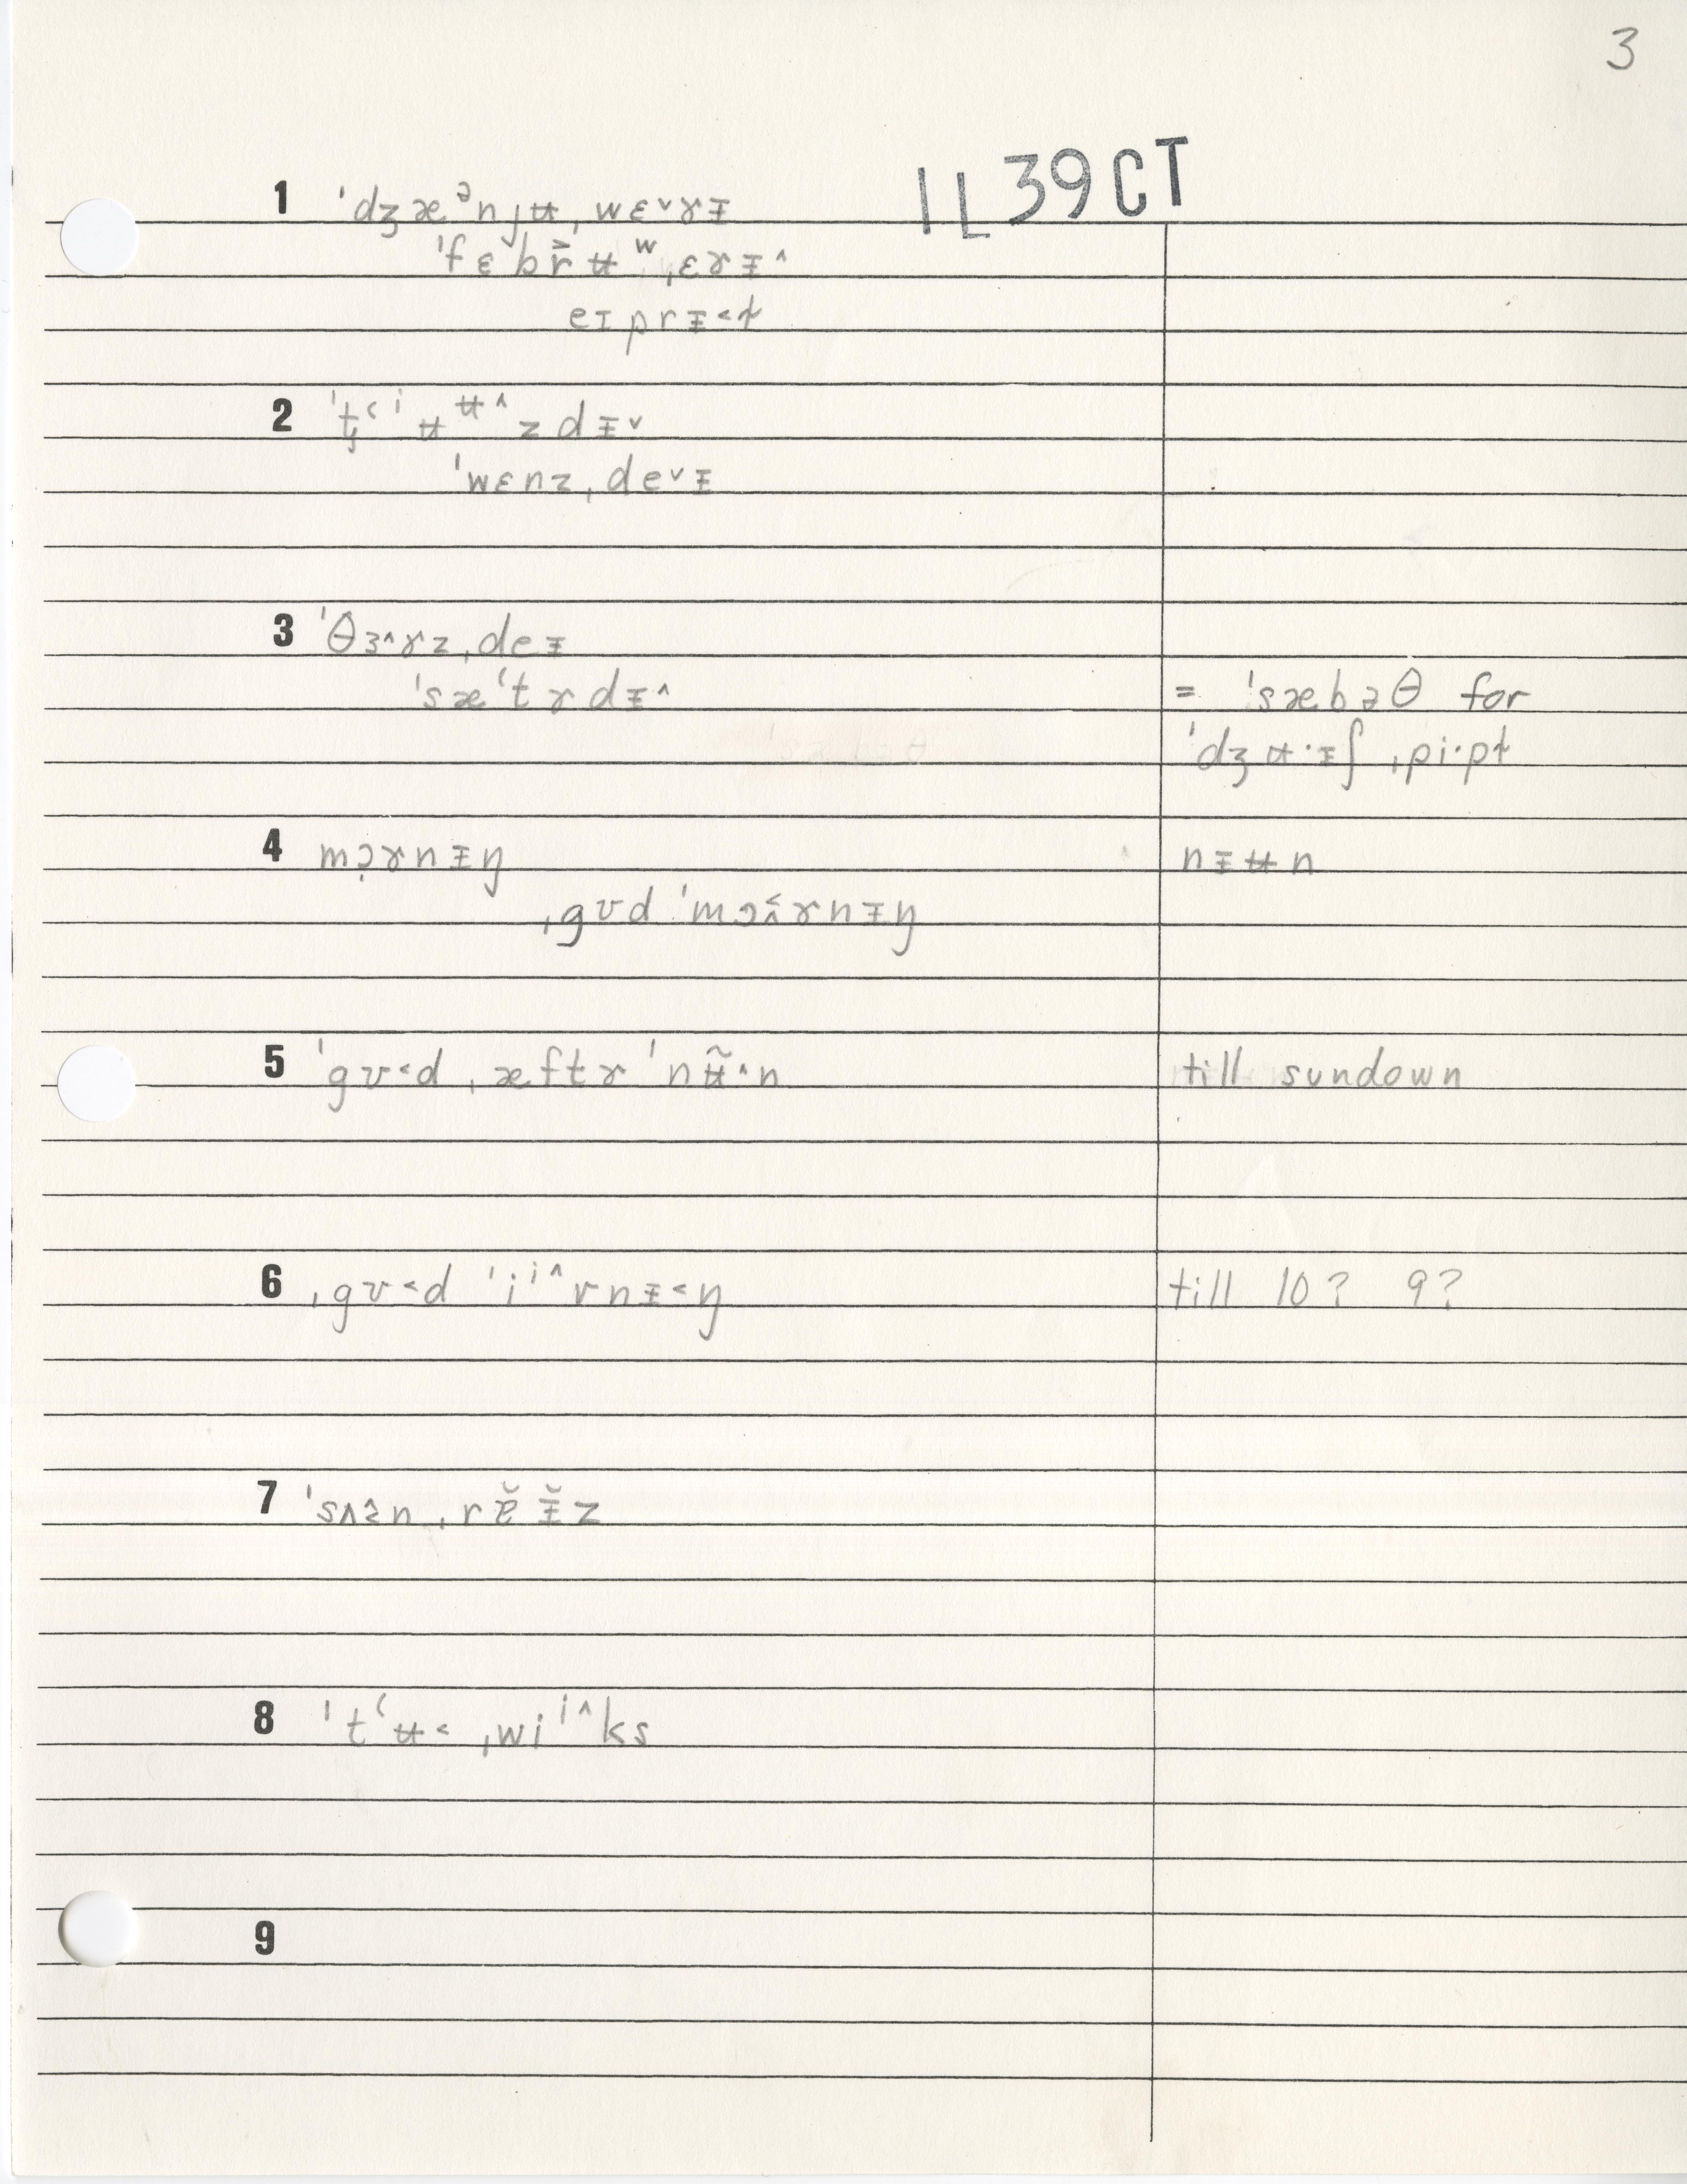 3
IL 39 CT
1 ˈdʒæᵊnjʉˌwɛ˅ɤᵻ
ˈfɛbr̬ʉʷˌɛɤᵻ˄
eɪprᵻ˂ɫ
2 ˈt̡ʻⁱʉᶶ˄zdᵻ˅
ˈwɛnzˌde˅ᵻ
3 ˈθɜ˄ɤzˌdeᵻ
ˈsæˈtɤdᵻ˄ = ˈsæbəθ for
ˈdʒʉ·ᵻʃ ˌpi·pɫ
4 mɔ̣ɤnᵻŋ nᵻʉn
ˌgʊd ˈmɔ˂˄ɤnᵻŋ
5 ˈgʊ˂d ˌæftɤ ˈnʉ̃˄n till sundown
6 ˌgʊ˂d ˈiⁱ˄vnᵻ˂ŋ till 10? 9?
7 ˈsʌ˂nˌræ̆ᵻ̆z
8 ˈtʻʉ˂ ˌwiⁱ˄ks
9